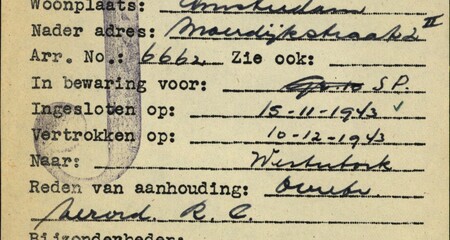 Woonplaats: Amsterdam
Nader adres: Moerdijkstraat 2 II
Arr. No.: 6662 Zie ook:
In bewaring voor: S.P.
Ingesloten op: 15-11-1943
Vertrokken op: 10-12-1943
Naar: Westerbork
Reden van aanhouding: Overtr.
verord. R.C.
Bijzonderheden: